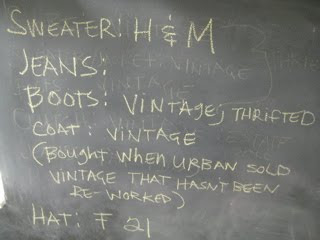 SWEATER: H & M
JEANS:
BOOTS: VINTAGE; THRIFTED
COAT: VINTAGE
(BOUGHT WHEN URBAN SOLD
VINTAGE THAT HASN'T BEEN
RE-WORKED)
HAT: F 21